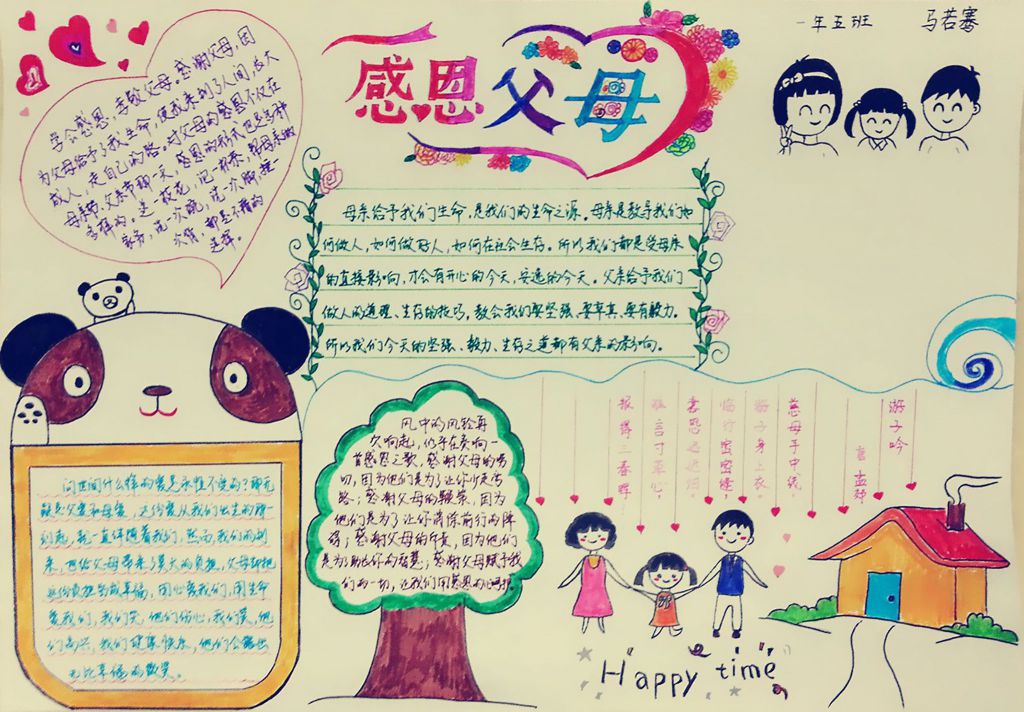 一年五班 马若骞
感恩父母
学会感恩，孝敬父母。感谢父母，因
为父母给予了我生命，使我来到了人间，长大
成人，走自己的路。对父母的感恩不仅在
母亲节、父亲节那一天，感恩的形式也是多种
多样的。送一枝花，记一
家务，洗一次碗，洗一次脚，捶一
次背，都是不错的
选择。
母亲给予我们生命，是我们的生命之源。母亲是教导我们如
何做人，如何做好人，如何在社会生存。所以我们都是受母亲
的直接影响，才会有开心的今天，安逸的今天。父亲给予我们
做人的道理、生存的技巧，教会我们要坚强、要率真、要有毅力。
所以我们今天的坚强、毅力、生存之道都有父亲的影响。
问世间什么样的爱是永恒不变的？那无
疑是父爱和母爱，这份爱从我们出生的那一
刻起，就一直伴随着我们，然而，我们的到
来，也给父母带来了莫大的负担，父母却把
这份负担当成幸福，用心爱我们，用生命
爱我们，我们哭，他们伤心，我们笑，他
们高兴，我们健康快乐，他们会露出
无比幸福的微笑。
风中的风铃再
次响起，似乎在奏响一
首感恩之歌，感谢父母的
切，因为他们是为了让你少走弯
路；感谢父母的鞭策，因为
他们是为了让你消除前行的障
碍；感谢父母的斥责，因为他们
是为了助长你的智慧；感谢父母赋予我
们的一切，让我们用感恩的心
游子吟
唐 孟郊
慈母手中线，
游子身上衣。
临行密密缝，
意恐迟迟归。
谁言寸草心，
报得三春晖。
Happy time